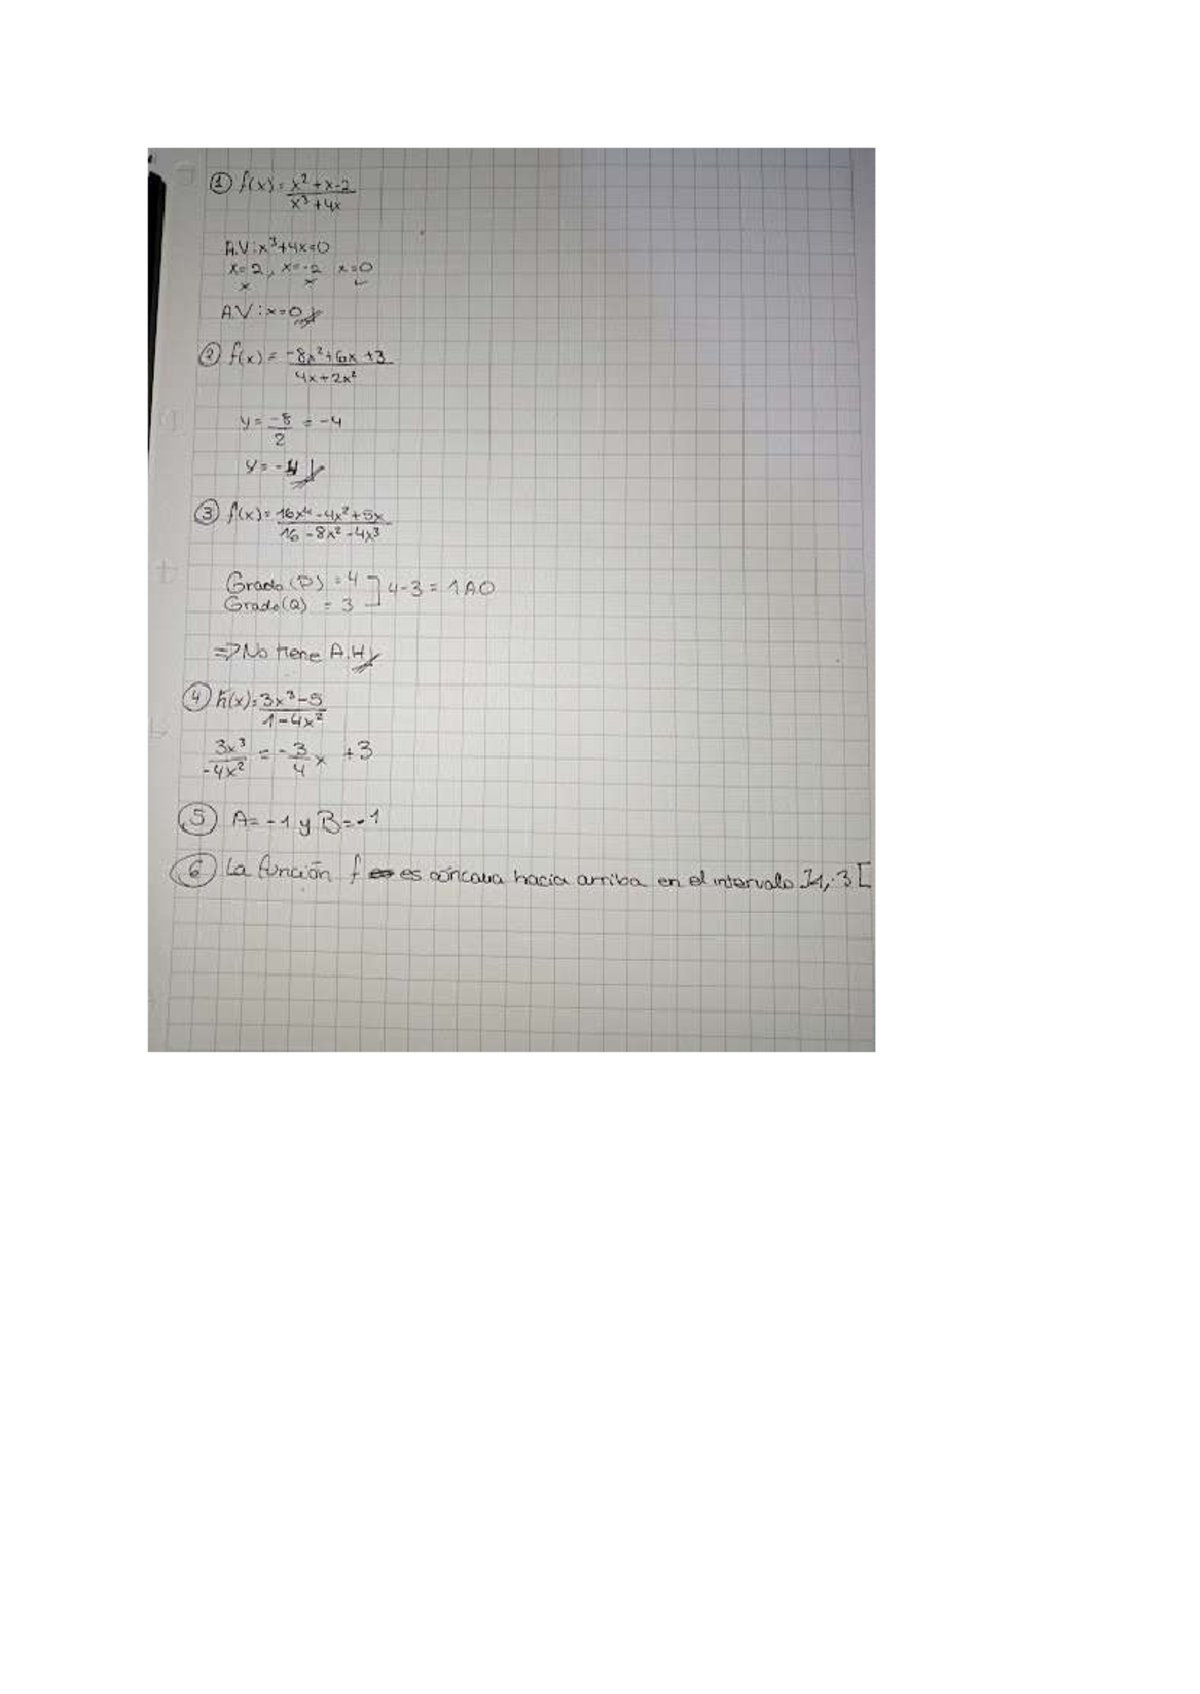 ① f(x) = x² + x - 2
x³ + 4x
A.V: x³ + 4x = 0
x = 2, x = -2 x = 0
x x ✓
A.V: x = 0
② f(x) = -8x² + 6x + 3
4x + 2x²
y = -8 = -4
2
y = -4
③ f(x) = 16x⁴ - 4x² + 5x
16 - 8x² - 4x³
Grado (P) = 4
4 - 3 = 1 AO
Grado (Q) = 3
=> No tiene A.H
④ h(x) = 3x³ - 5
1 - 4x²
3x³ = - 3 x + 3
-4x² 4
⑤ A = -1 y B = -1
⑥ La función f es cóncava hacia arriba en el intervalo